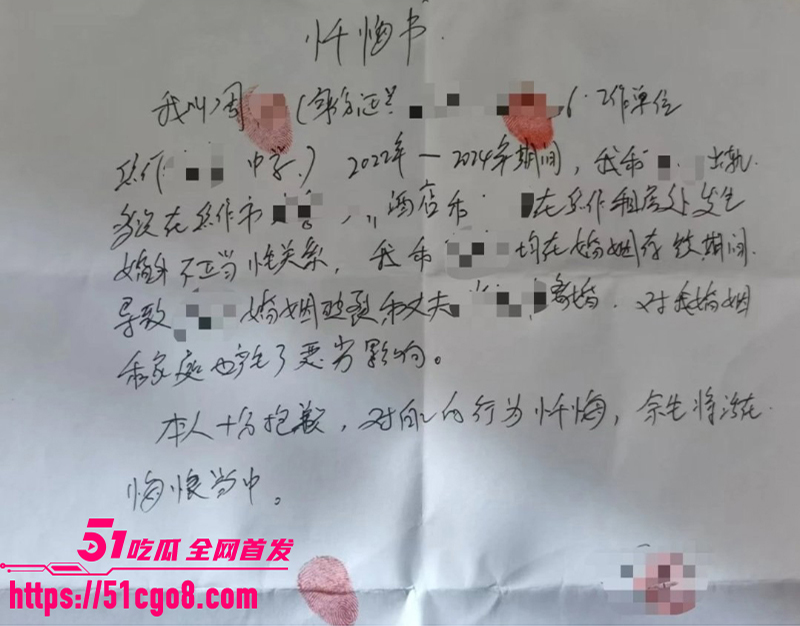 忏悔书.
我叫周 (身份证号 6. 工作单位
焦作 中学.) 2022年—2024年期间, 我和 出轨.
多次在焦作市 酒店和 在焦作租房处发生
婚外不正当性关系, 我和 均在婚姻存续期间.
导致 婚姻破裂和丈夫 离婚. 对我婚姻
和家庭也造成了恶劣影响。
本人十分抱歉, 对自己的行为忏悔, 余生将活在
悔恨当中。
51吃瓜 全网首发
https://51cgo8.com